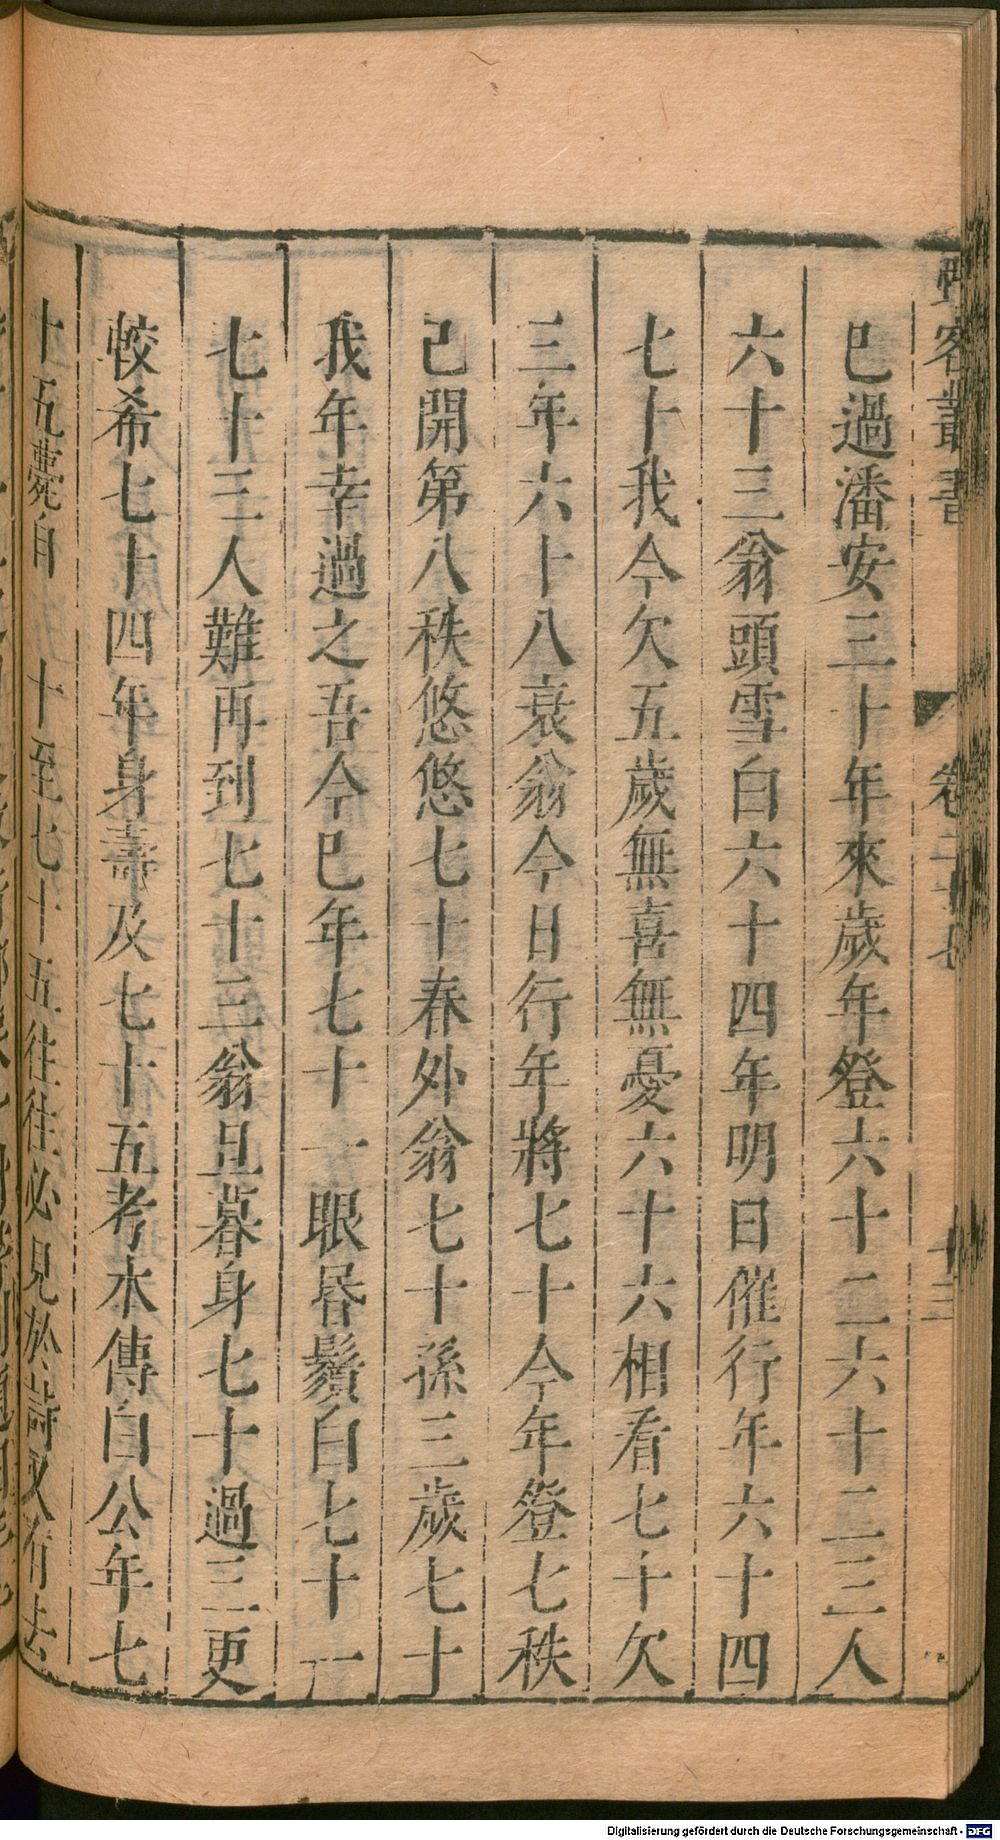 野客叢書 卷二十七 十三
已過潘安三十年來歲年登六十二六十二三人
六十三翁頭雪白六十四年明日催行年六十四
七十我今欠五歲無喜無憂六十六相看七十欠
三年六十八衰翁今日行年將七十今年登七秩
已開第八秩悠悠七十春外翁七十孫三歲七十
我年幸過之吾今已年七十一眼昏鬚白七十一
七十三人難再到七十三翁旦暮身七十過三更
較希七十四年身壽及七十五考本傳白公年七
十五薨自 十至七十五往往必見於詩又有去
Digitalisierung gefördert durch die Deutsche Forschungsgemeinschaft - DFG